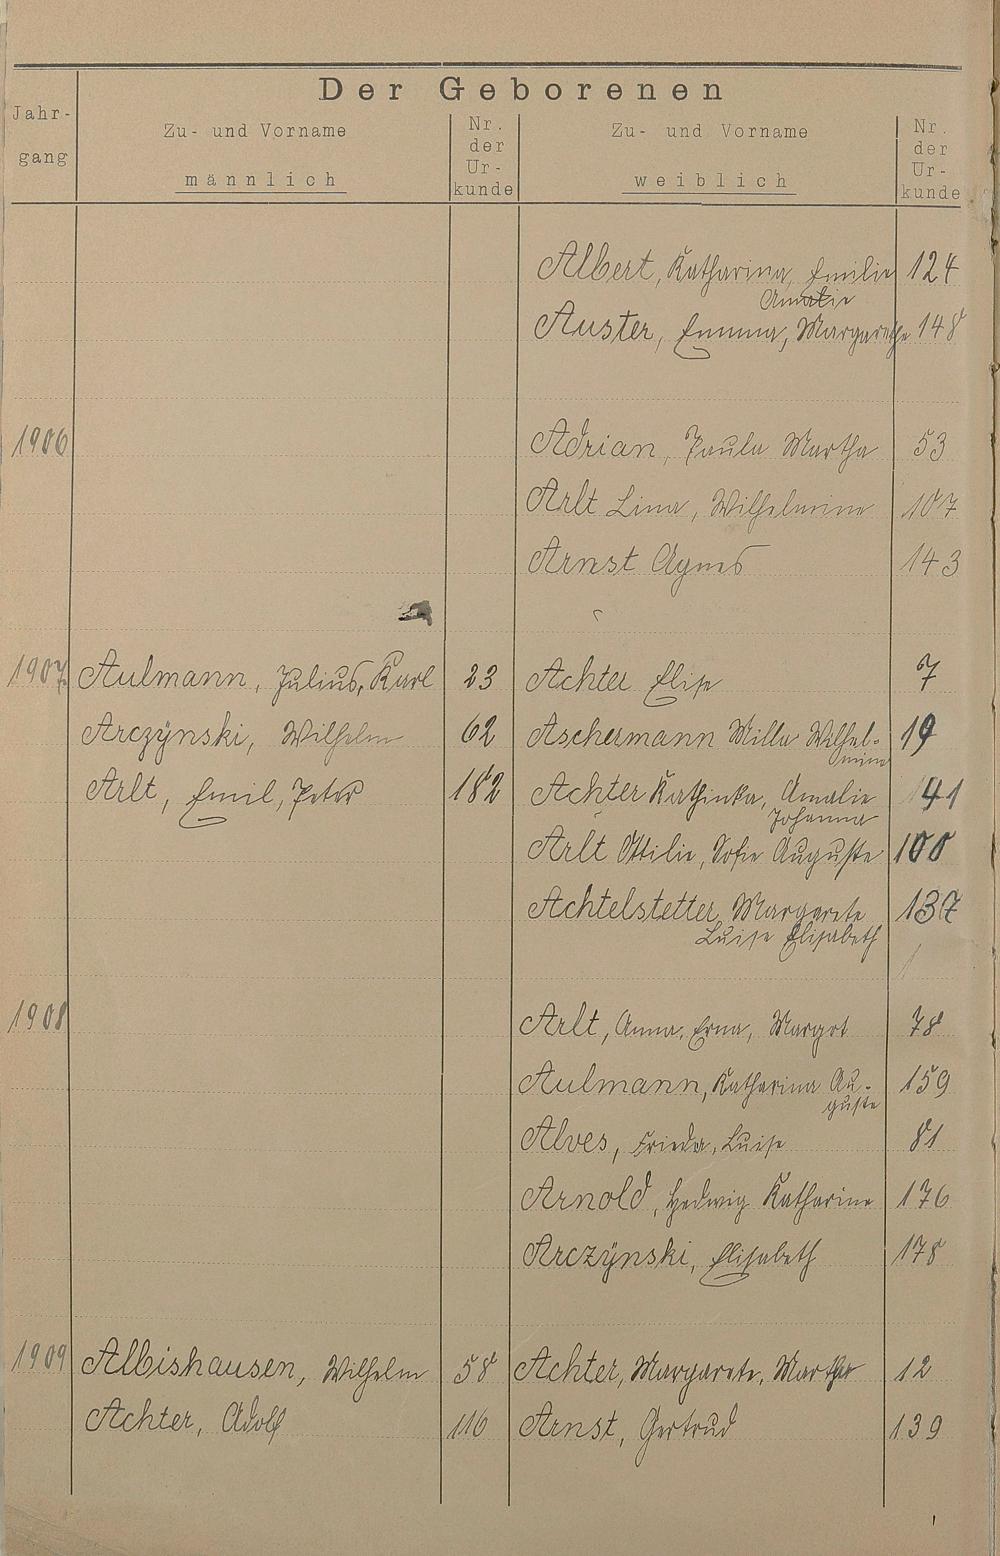 Der Geborenen
Jahr-
gang
Zu- und Vorname
männlich
Nr.
der
Ur-
kunde
Zu- und Vorname
weiblich
Nr.
der
Ur-
kunde
Albert, Katharina, Emilie 124
Amalie
Auster, Emma, Margarethe 148
1906 Adrian, Paula Martha 53
Arlt Lina, Wilhelmine 107
Arnst Agnes 143
1907 Aulmann, Julius, Karl 23 Achter Elise 7
Arczÿnski, Wilhelm 62 Aschermann Milla Wilhel- 19
mine
Arlt, Emil, Peter 182 Achter Kathinka, Amalie 41
Johanna
Arlt Ottilie, Sofie Auguste 100
Achtelstetter Margarete 137
Luise Elisabeth
1908 Arlt, Anna, Erna, Margot 78
Aulmann, Katharina Au- 159
guste
Alves, Frieda, Luise 81
Arnold, Hedwig Katharine 176
Arczÿnski, Elisabeth 178
1909 Albishausen, Wilhelm 58 Achter, Margarete, Martha 12
Achter, Adolf 116 Arnst, Gertrud 139